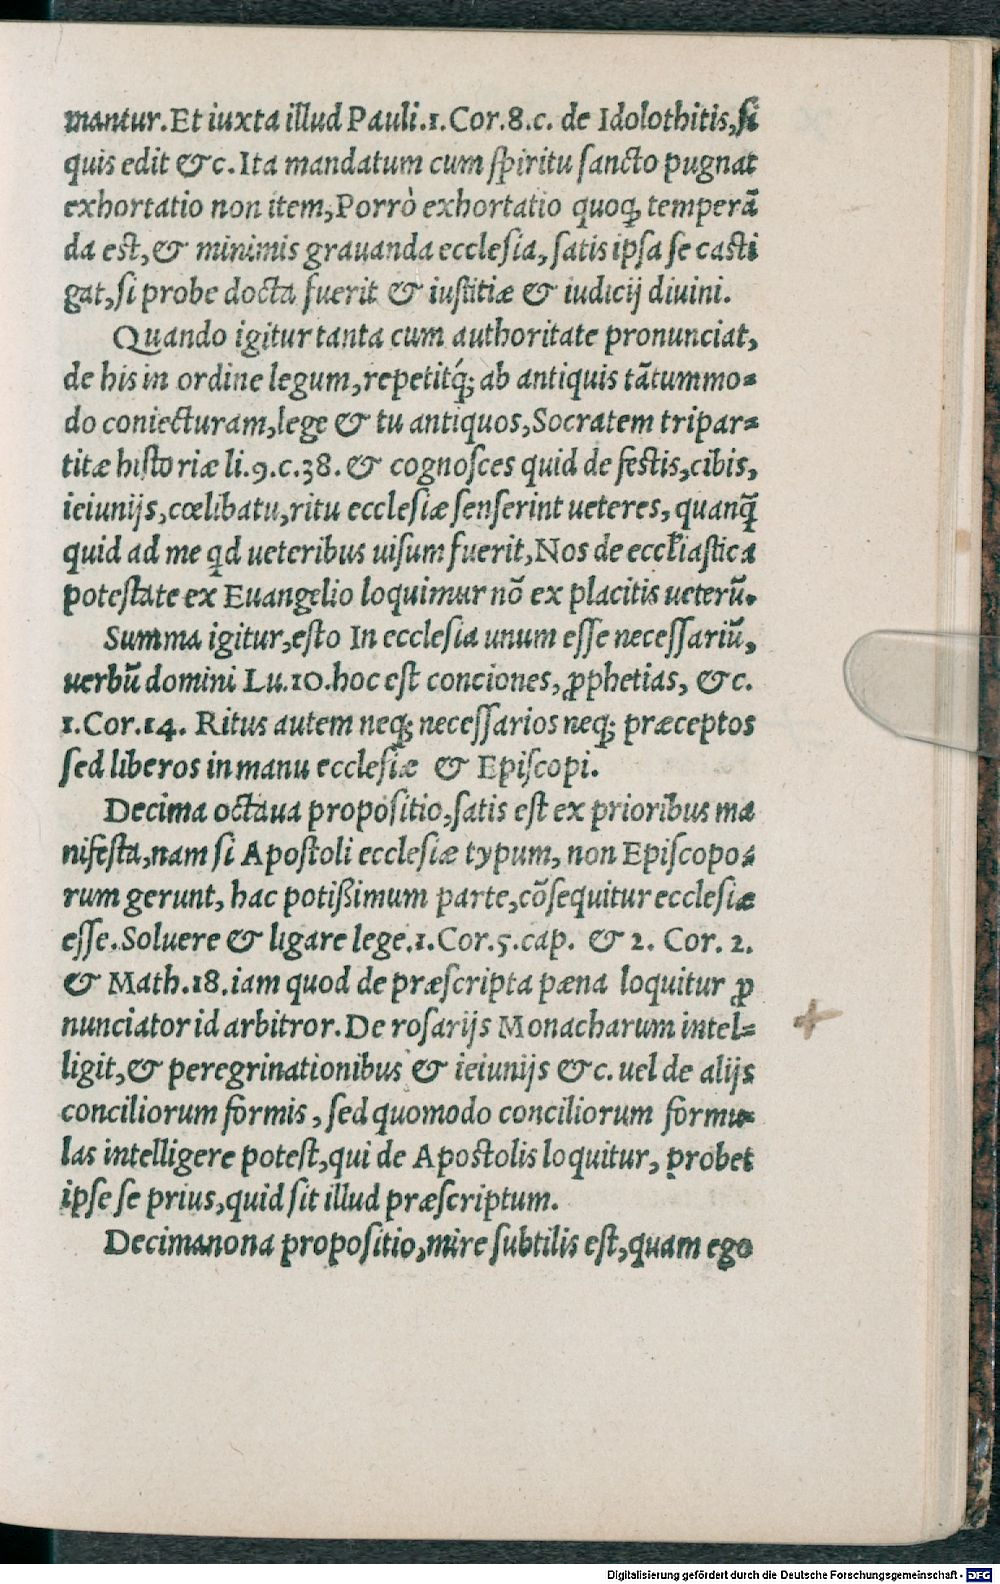 mantur. Et iuxta illud Pauli.1.Cor.8.c. de Idolothitis, si
quis edit &c. Ita mandatum cum spiritu sancto pugnat
exhortatio non item, Porrò exhortatio quoq; temperā
da est, & minimis grauanda ecclesia, satis ipsa se casti
gat, si probe docta fuerit & iustitiæ & iudicij diuini.
Quando igitur tanta cum authoritate pronunciat,
de his in ordine legum, repetitq́; ab antiquis tātummo=
do coniecturam, lege & tu antiquos, Socratem tripar=
titæ historiæ li.9.c.38. & cognosces quid de festis, cibis,
ieiunijs, cœlibatu, ritu ecclesiæ senserint ueteres, quanq̄
quid ad me qd ueteribus uisum fuerit, Nos de eccl̄iastica
potestate ex Euangelio loquimur nō ex placitis ueterū.
Summa igitur, esto In ecclesia unum esse necessariū,
uerbū domini Lu.10. hoc est conciones, ꝓphetias, &c.
1.Cor.14. Ritus autem neq; necessarios neq; præceptos
sed liberos in manu ecclesiæ & Episcopi.
Decima octaua propositio, satis est ex prioribus ma
nifesta, nam si Apostoli ecclesiæ typum, non Episcopo=
rum gerunt, hac potißimum parte, cōsequitur ecclesiæ
esse. Soluere & ligare lege.1.Cor.5.cap. & 2. Cor. 2.
& Math.18. iam quod de præscripta pæna loquitur ꝓ
nunciator id arbitror. De rosarijs Monacharum intel=
ligit, & peregrinationibus & ieiunijs &c. uel de alijs
conciliorum formis, sed quomodo conciliorum formu=
las intelligere potest, qui de Apostolis loquitur, probet
ipse se prius, quid sit illud præscriptum.
Decimanona propositio, mire subtilis est, quam ego
Digitalisierung gefördert durch die Deutsche Forschungsgemeinschaft - DFG